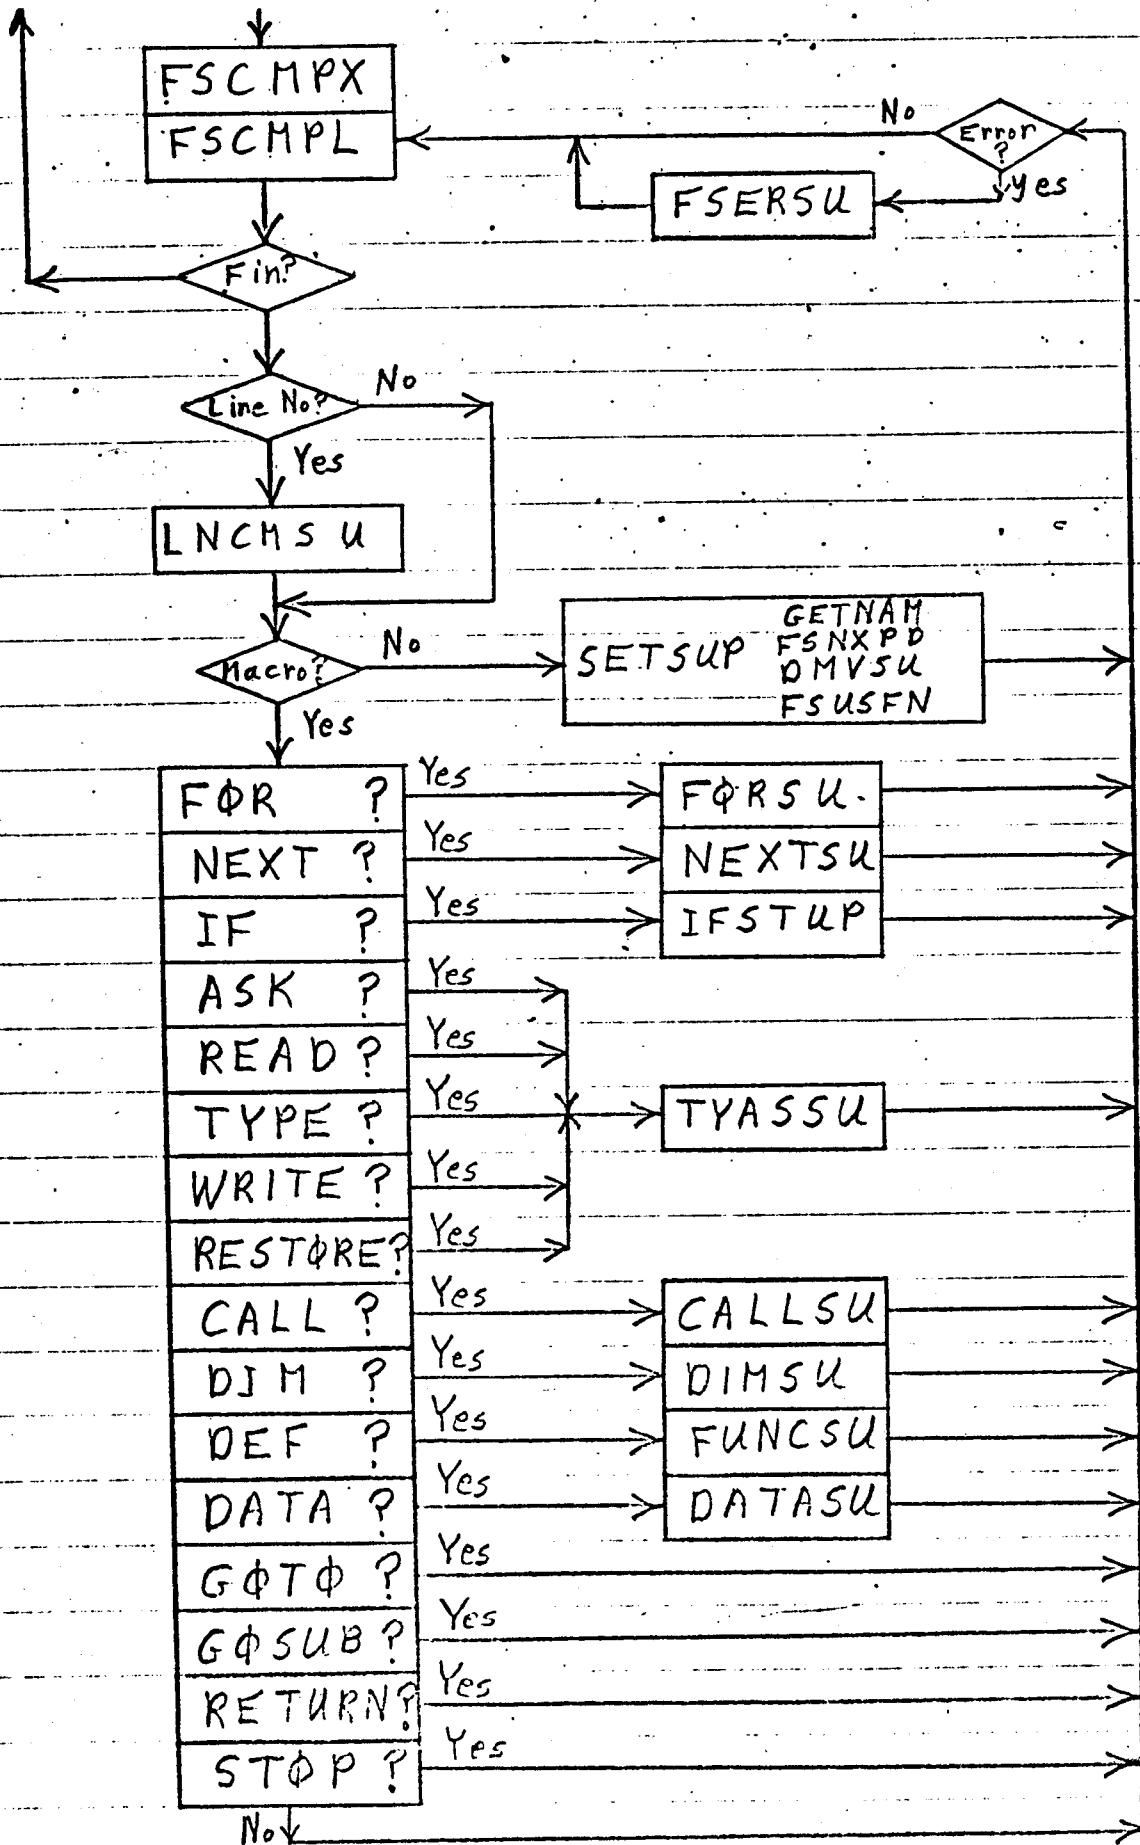 FSCMPX
FSCMPL
No
Error
?
Yes
FSERSU
Fin?
Line No?
No
Yes
LNCMSU
Macro?
No
SETSUP
GETNAM
FSNXPD
DMVSU
FSUSFN
Yes
FØR ?
Yes
FØRSU.
NEXT ?
Yes
NEXTSU
IF ?
Yes
IFSTUP
ASK ?
Yes
READ ?
Yes
TYPE ?
Yes
TYASSU
WRITE ?
Yes
RESTØRE?
Yes
CALL ?
Yes
CALLSU
DIM ?
Yes
DIMSU
DEF ?
Yes
FUNCSU
DATA ?
Yes
DATASU
GØTØ ?
Yes
GØSUB ?
Yes
RETURN?
Yes
STØP ?
Yes
No